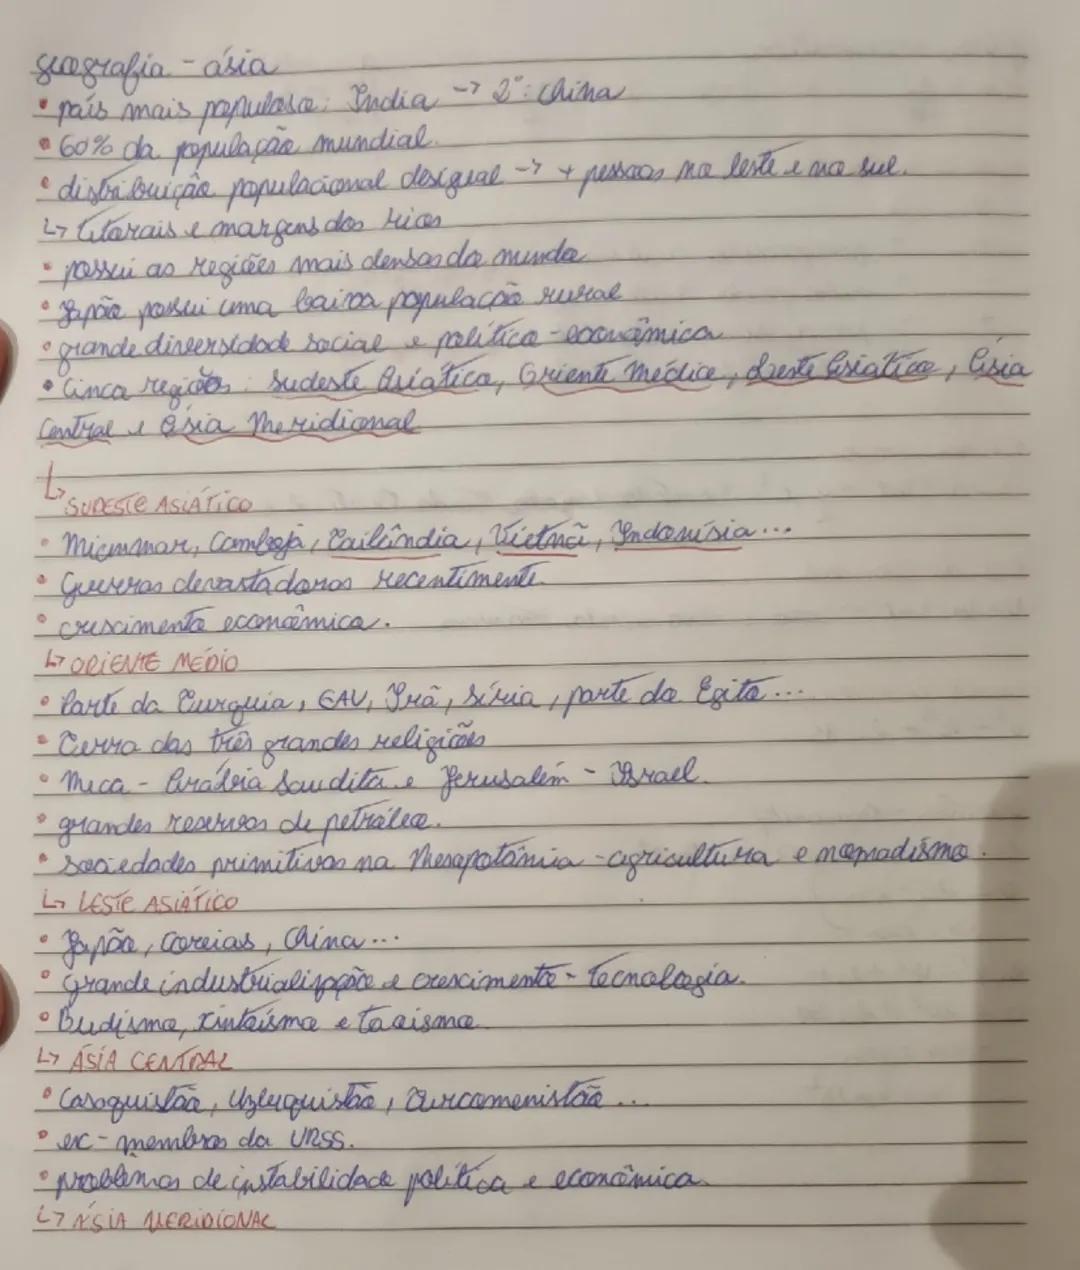 geografia - ásia
• país mais populoso: Índia -> 2°: China
• 60% da população mundial.
• distribuição populacional desigual -> + pessoas no leste e no sul.
↳ litorais e margens dos rios
• possui as regiões mais densas do mundo
• Japão possui uma baixa população rural
• grande diversidade social e política-econômica
• Cinco regiões: Sudeste Asiático, Oriente Médio, Leste Asiático, Ásia
Central e Ásia Meridional
↳ SUDESTE ASIÁTICO
• Mianmar, Camboja, Tailândia, Vietnã, Indonésia...
• Guerras devastadoras recentimente.
• crescimento econômico.
↳ ORIENTE MÉDIO
• Parte da Turquia, EAU, Irã, Síria, parte do Egito...
• Terra das três grandes religiões
• Meca - Arábia Saudita e Jerusalém - Israel.
• grandes reservas de petróleo.
• sociedades primitivas na Mesopotâmia - agricultura e nomadismo.
↳ LESTE ASIÁTICO
• Japão, Coreias, China...
• grande industrialização e crescimento - tecnologia.
• Budismo, xintoísmo e taoismo
↳ ÁSIA CENTRAL
• Casaquistão, Uzbequistão, Turcomenistão...
• ex-membros da URSS.
• problemas de instabilidade política e econômica.
↳ ÁSIA MERIDIONAL